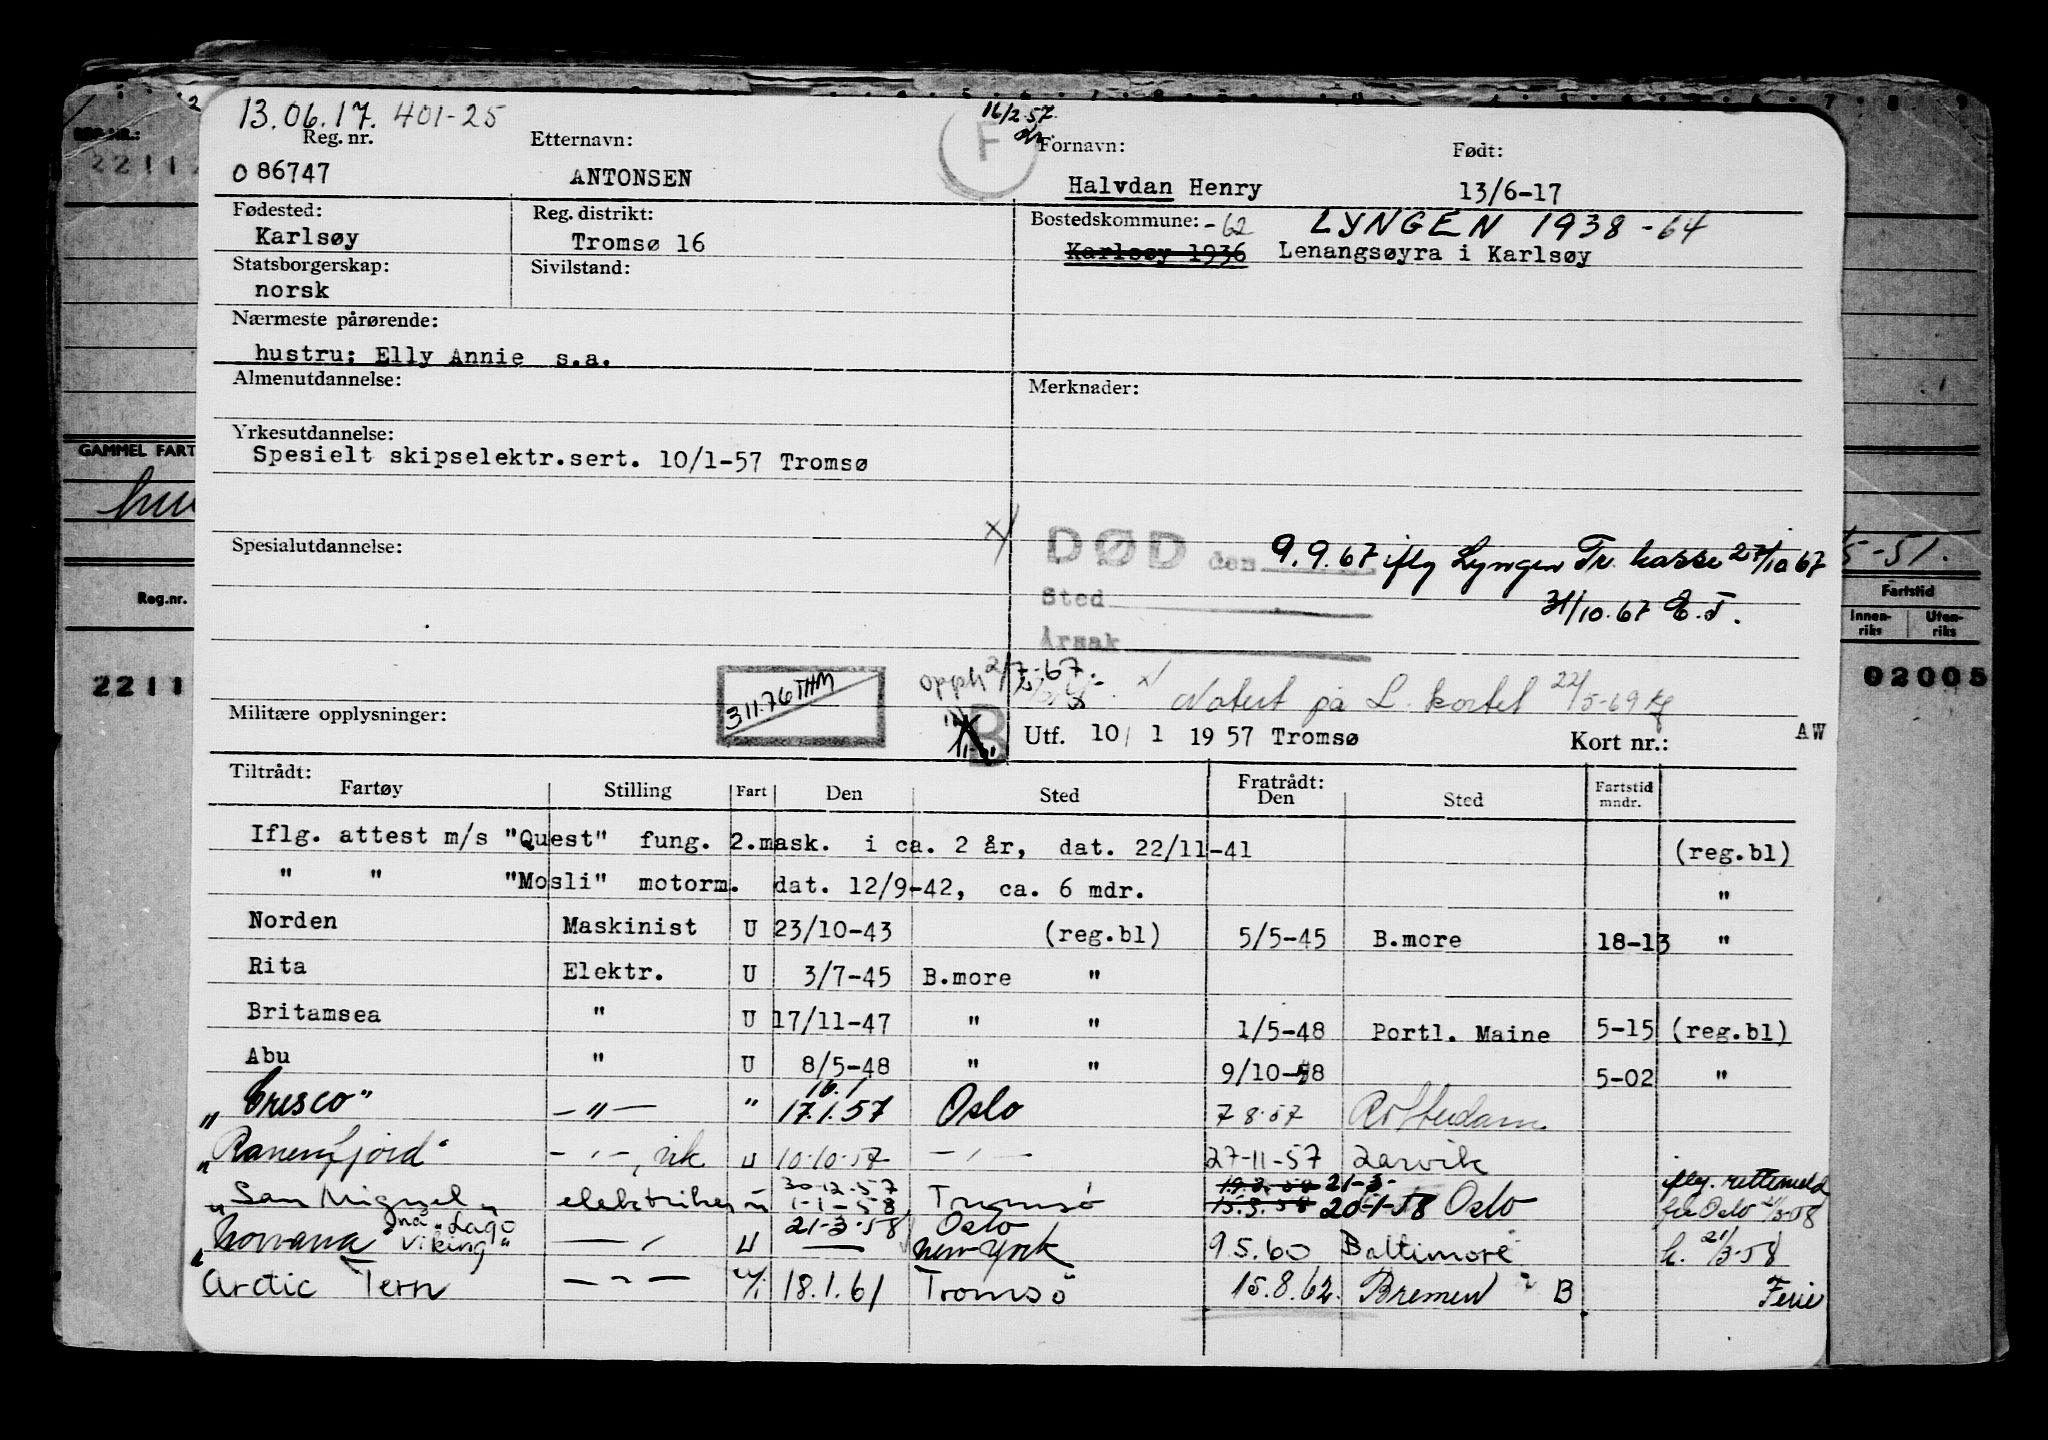 13.06.17. 401-25
16/2.57.
Reg. nr. Etternavn: F Fornavn: Født:
O 86747 ANTONSEN Halvdan Henry 13/6-17
Fødested: Reg. distrikt: Bostedskommune: -62 LYNGEN 1938-64
Karlsøy Tromsø 16 Karlsøy 1936 Lenangsøyra i Karlsøy
Statsborgerskap: Sivilstand:
norsk
Nærmeste pårørende:
hustru: Elly Annie s.a.
Almenutdannelse: Merknader:
Yrkesutdannelse:
Spesielt skipselektr.sert. 10/1-57 Tromsø
Spesialutdannelse: DØD den 9.9.67 iflg Lyngen Tr. kasse 27/10 67
Sted 31/10.67 E.T.
Årsak
311.76 THM opph 2/7-67.
x/ Notert på L. kortet 22/5-69
Militære opplysninger: B Utf. 10/ 1 19 57 Tromsø Kort nr.: AW
Tiltrådt: Fratrådt:
Fartøy Stilling Fart Den Sted Den Sted Fartstid mndr.
Iflg. attest m/s "Quest" fung. 2.mask. i ca. 2 år, dat. 22/11-41 (reg.bl)
" " "Mosli" motorm. dat. 12/9-42, ca. 6 mdr. "
Norden Maskinist U 23/10-43 (reg.bl) 5/5-45 B.more 18-13 "
Rita Elektr. U 3/7-45 B.more "
Britamsea " U 17/11-47 " " 1/5-48 Portl. Maine 5-15 (reg.bl)
Abu " U 8/5-48 " " 9/10-48 5-02 "
16.1
"Cresco" -"- " 17.1.57 Oslo 7 8.57 Rotterdam
"Ranenfjord" -"-, vik U 10.10.57 -"- 27-11-57 Larvik
30-12-57 19.3.58 21-3- iflg. rettemeld
"San Miguel" elektriker U 1-1-58 Tromsø 15.3.58 20-1-58 Oslo fra Oslo 21/3-58
nå "Lago Viking" 21-3-58 Oslo
"Norvana - " - U — New York 9 5.60 Baltimore h. 21/3-58
Arctic Tern - " - U/i 18.1.61 Tromsø 15.8.62. Bremen B Ferie
REG.NR.:
2211
GAMMEL FART
Reg.nr.
2211
5-51.
Fartstid
Innen-riks Uten-riks
02005